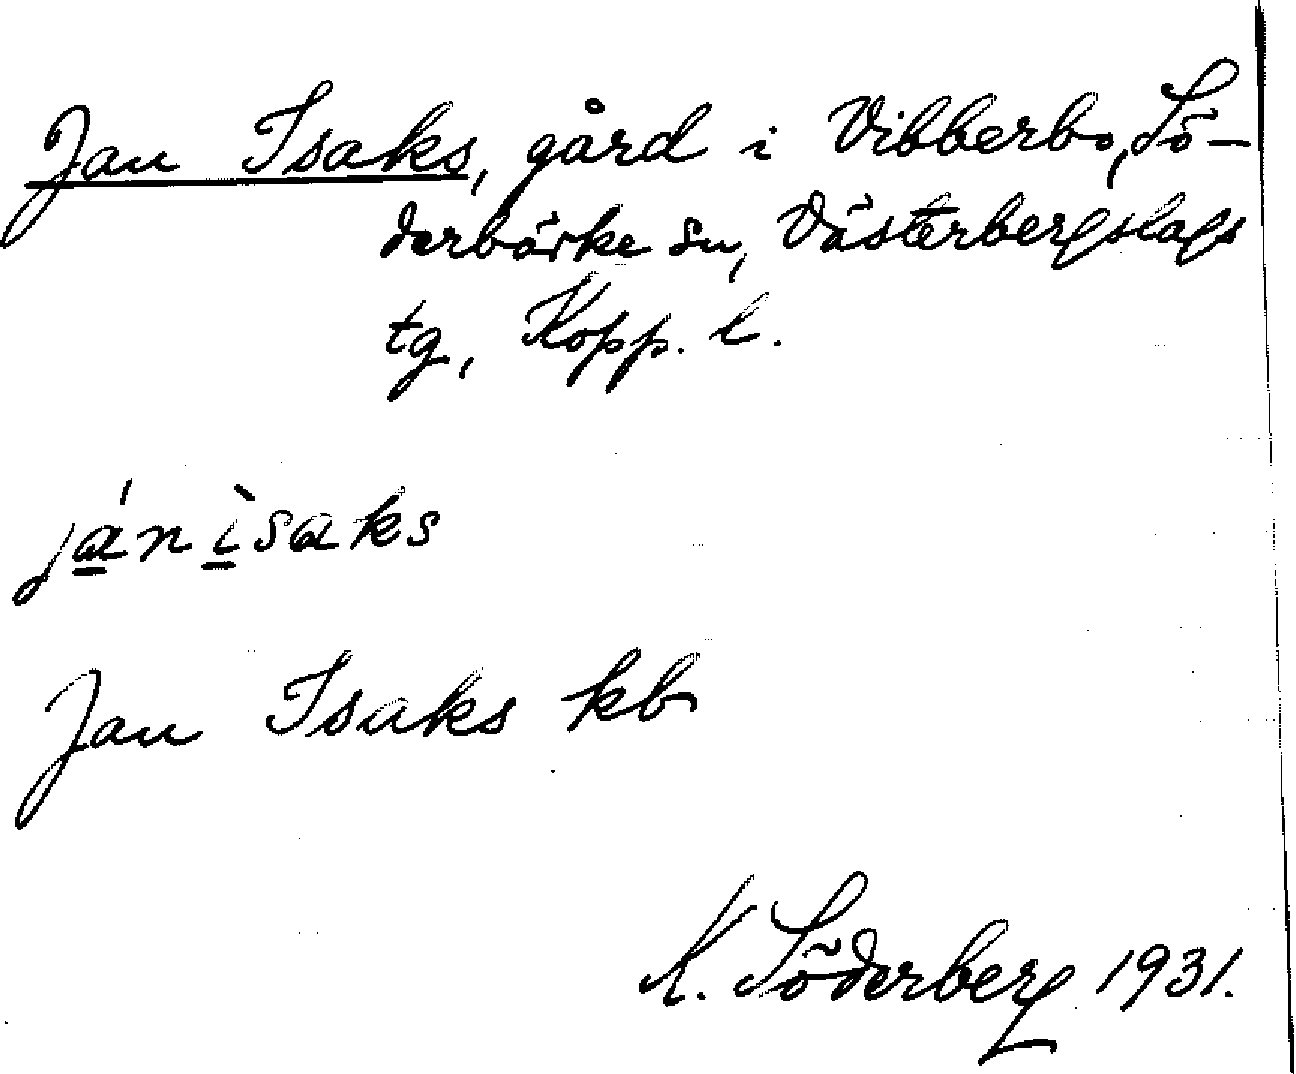 Jan Isaks, gård i Vibberbo, Sö-
derbärke sn, Västerbergslags
tg, Kopp. l.
ján ìsaks
Jan Isaks kb
K. Söderberg 1931.